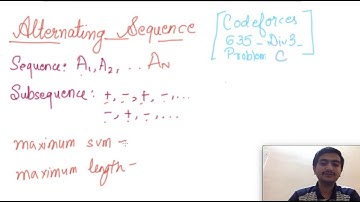 Alternating Sequence
[Codeforces
635 - Div3 -
Problem C]
Sequence: A1, A2, ... AN
Subsequence: +, -, +, -, ...
-, +, -, ...
maximum sum -
maximum length -